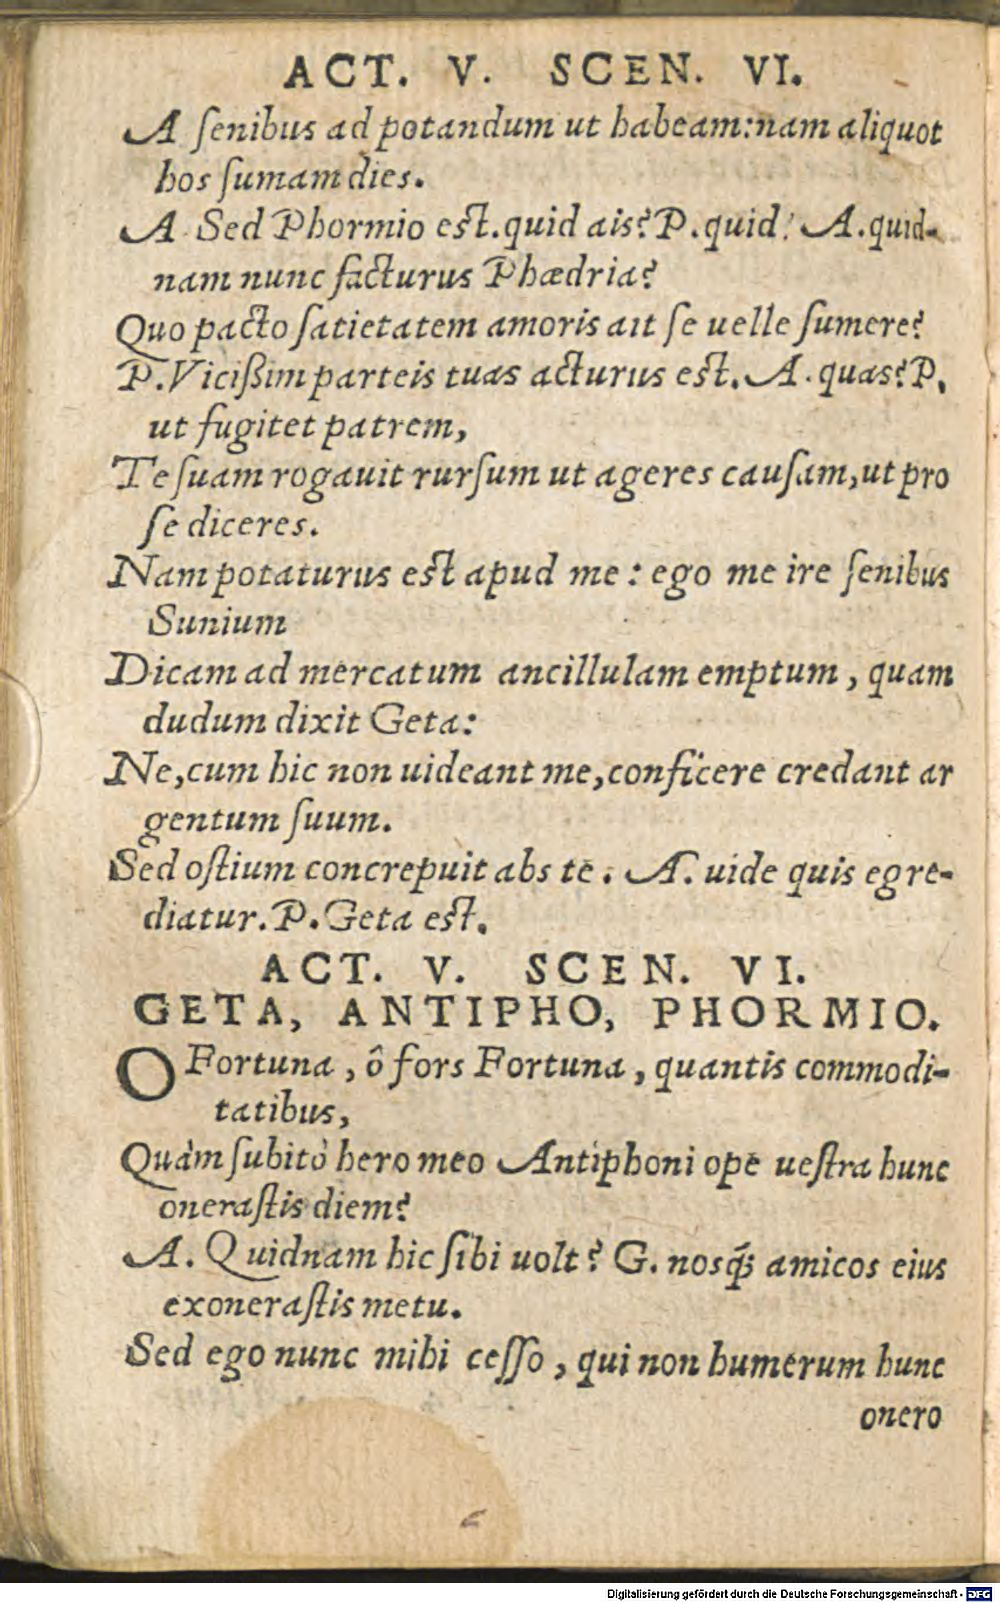 ACT. V. SCEN. VI.
A ſenibus ad potandum ut habeam:nam aliquot
hos ſumam dies.
A. Sed Phormio eſt.quid ais? P.quid? A.quid-
nam nunc facturus Phædria?
Quo pacto ſatietatem amoris ait ſe uelle ſumere?
P. Viciſſim parteis tuas acturus eſt. A. quas? P.
ut fugitet patrem,
Te ſuam rogauit rurſum ut ageres cauſam,ut pro
ſe diceres.
Nam potaturus eſt apud me : ego me ire ſenibus
Sunium
Dicam ad mercatum ancillulam emptum , quam
dudum dixit Geta:
Ne,cum hic non uideant me,conficere credant ar
gentum ſuum.
Sed oſtium concrepuit abs te . A. uide quis egre-
diatur. P. Geta eſt.
ACT. V. SCEN. VI.
GETA, ANTIPHO, PHORMIO.
O Fortuna , ô fors Fortuna , quantis commodi-
tatibus,
Quàm ſubitò hero meo Antiphoni ope ueſtra hunc
oneraſtis diem?
A. Quidnam hic ſibi uolt? G. nosq́; amicos eius
exoneraſtis metu.
Sed ego nunc mihi ceſſo , qui non humerum hunc
onero
Digitalisierung gefördert durch die Deutsche Forschungsgemeinschaft - DFG